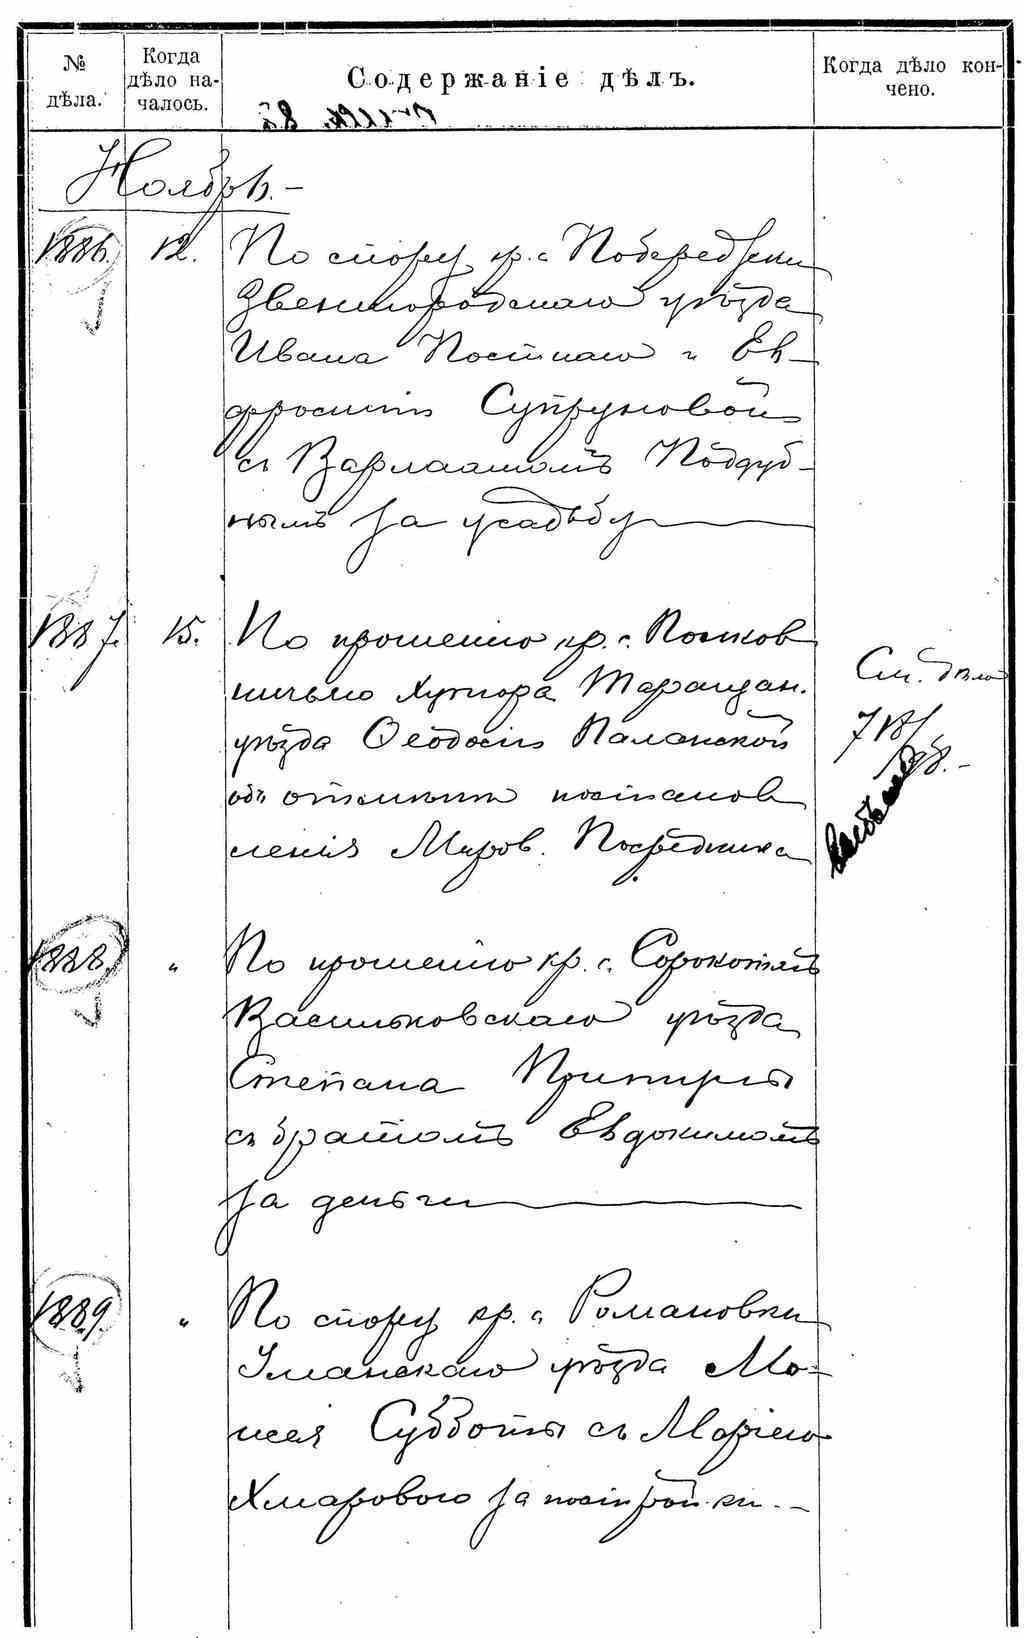 № дѣла.
Когда дѣло началось.
Содержаніе дѣлъ.
Когда дѣло кончено.
Ноябрь.-
1886. 12. По спору кр. с. Побережки
Звенигородскаго уѣзда
Ивана Постнаго и Ев-
фросиніи Супруновой
съ Варлаамомъ Поддуб-
нымъ за усадьбу
1887. 15. По прошенію кр. с. Полков
ничьяго Хутора Таращан.
уѣзда Ѳеодосіи Паланской
объ отмѣнѣ постанов
ленія Миров. Посредника
См. дѣло
1888. " По прошенію кр. с. Сорокотягъ
Васильковскаго уѣзда
Степана Притулы
съ братомъ Евдокимомъ
за деньги
1889. " По спору кр. с. Романовки
Уманскаго уѣзда Мо-
исея Субботы съ Маріею
Хмаровою за постройки.-